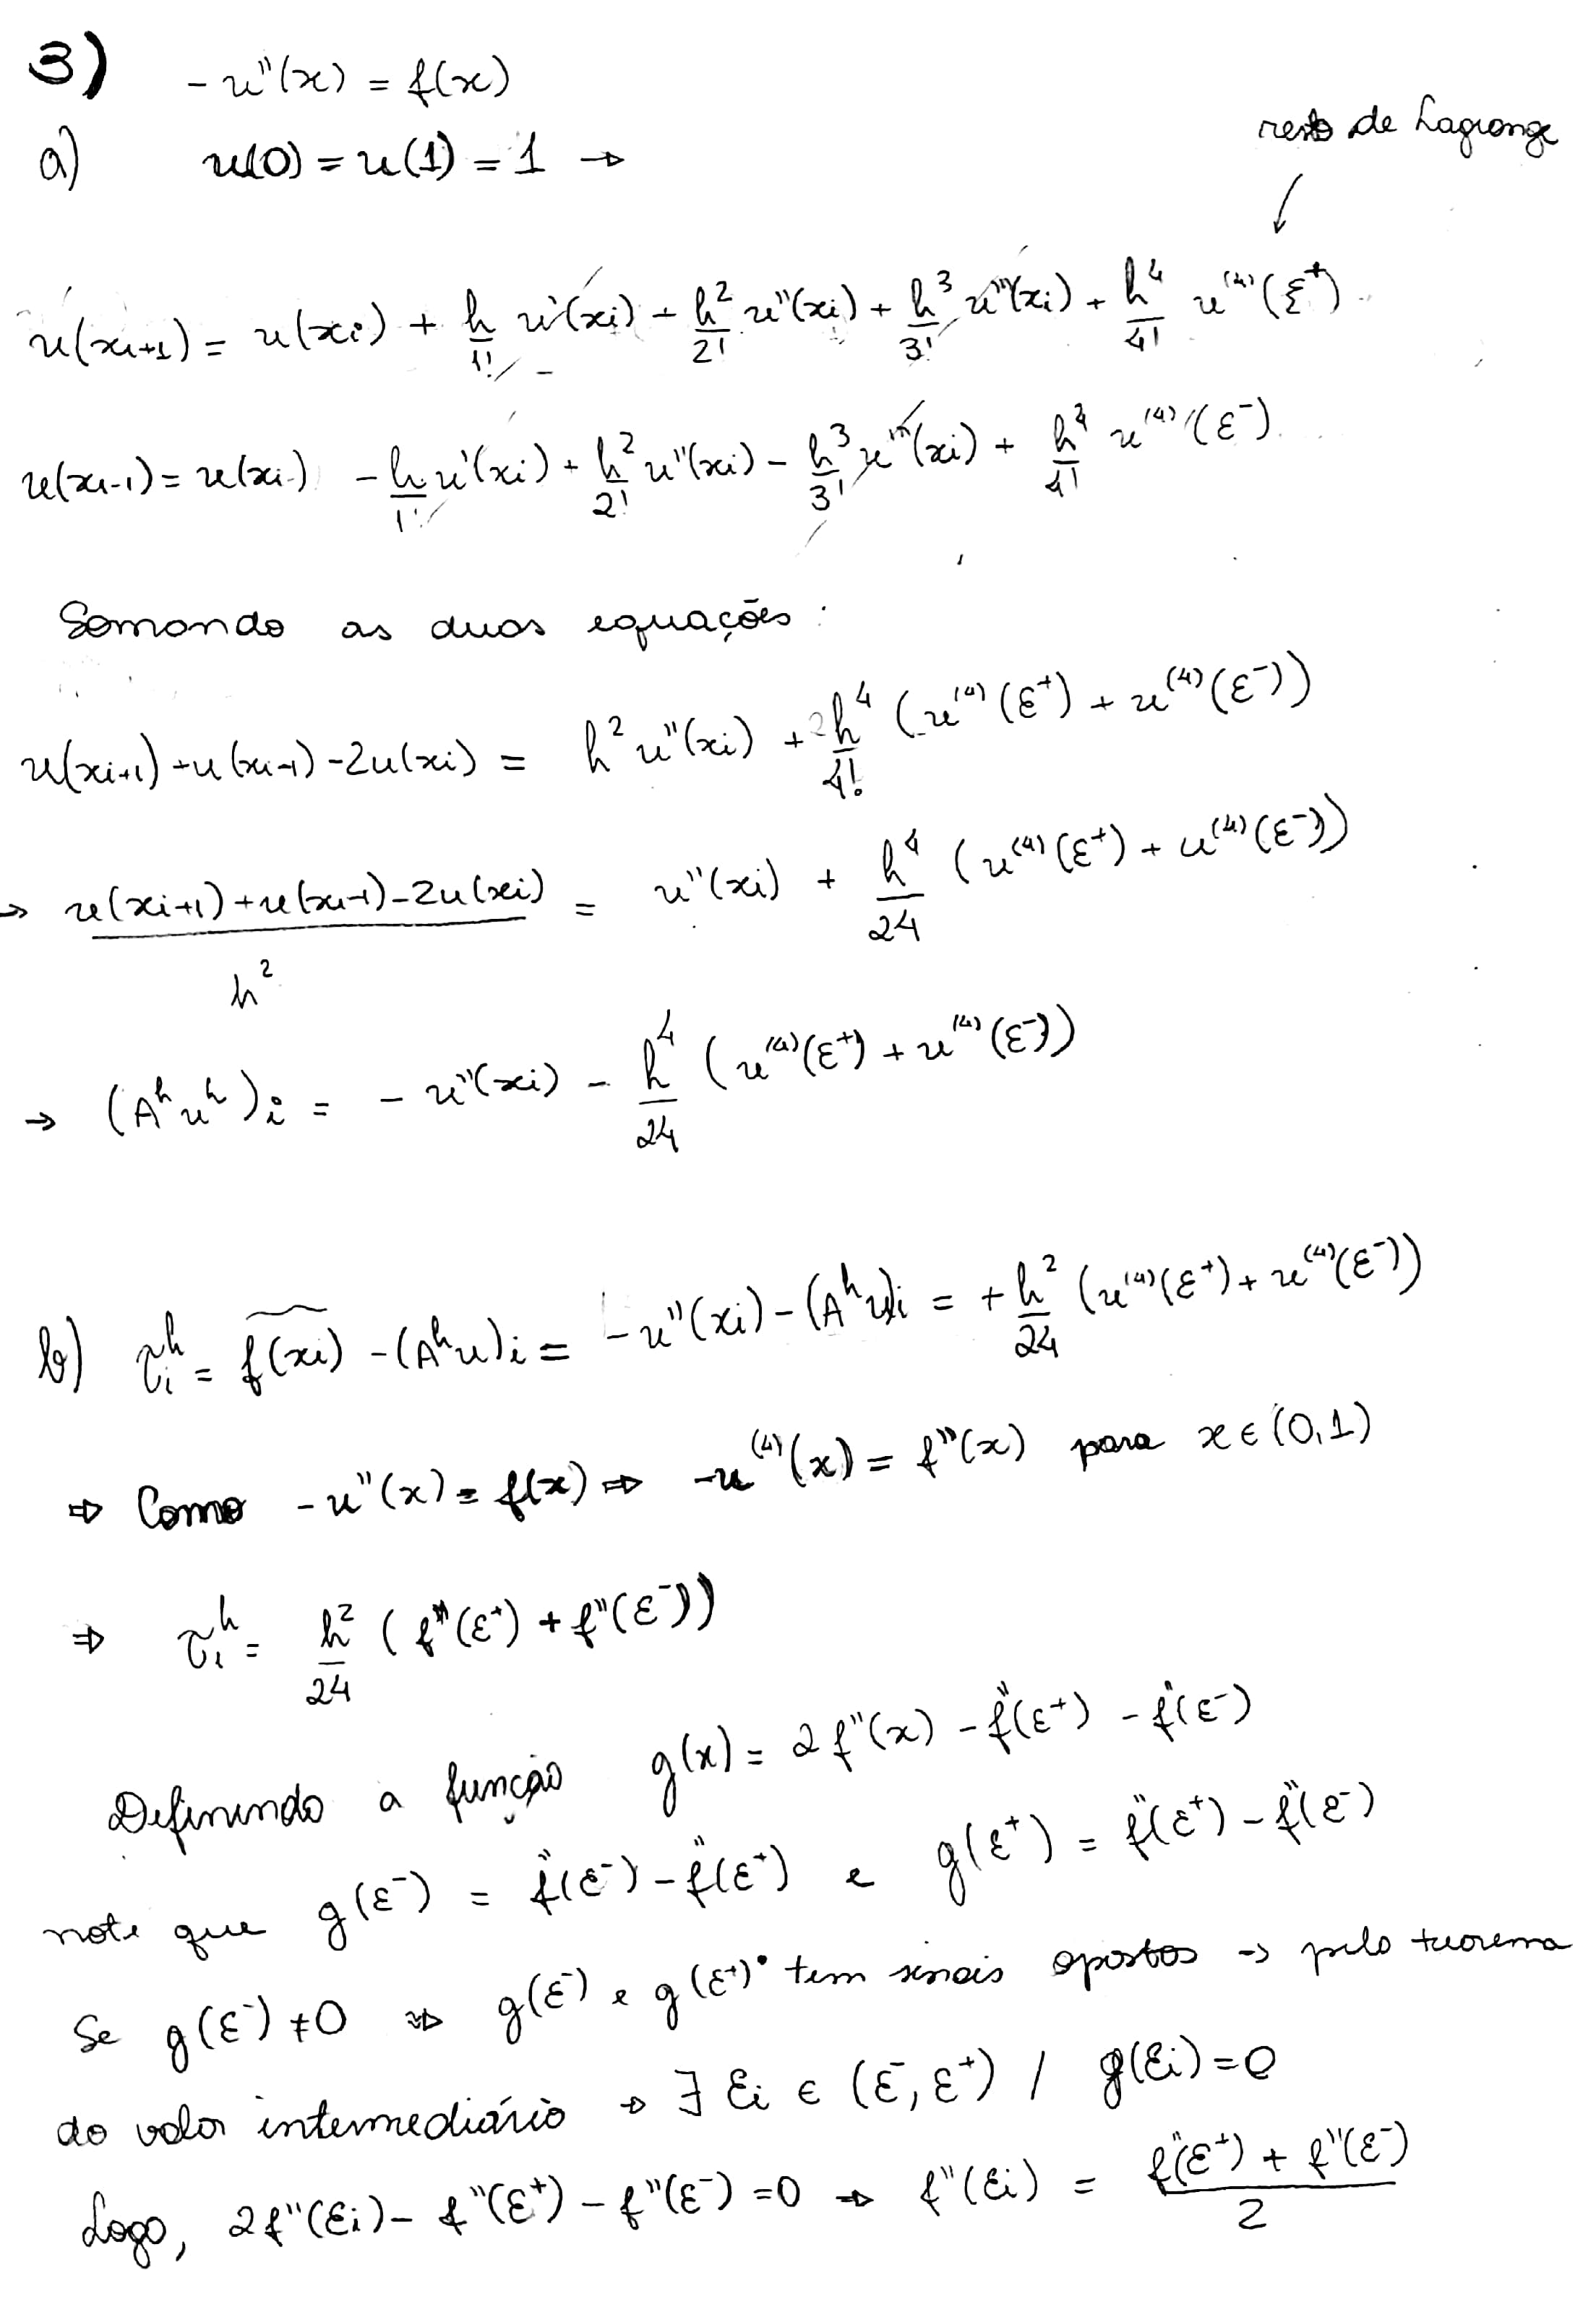 3) -u''(x) = f(x)
a) u(0) = u(1) = 1 →
resto de Lagrange
u(xi+1) = u(xi) + h/1! u'(xi) + h²/2! u''(xi) + h³/3! u'''(xi) + h⁴/4! u⁽⁴⁾(ε⁺)
u(xi-1) = u(xi) - h/1! u'(xi) + h²/2! u''(xi) - h³/3! u'''(xi) + h⁴/4! u⁽⁴⁾(ε⁻)
Somando as duas equações:
u(xi+1) + u(xi-1) - 2u(xi) = h² u''(xi) + h⁴/4! (u⁽⁴⁾(ε⁺) + u⁽⁴⁾(ε⁻))
→ u(xi+1) + u(xi-1) - 2u(xi) / h² = u''(xi) + h⁴/24 (u⁽⁴⁾(ε⁺) + u⁽⁴⁾(ε⁻))
→ (Aʰuʰ)i = - u''(xi) - h⁴/24 (u⁽⁴⁾(ε⁺) + u⁽⁴⁾(ε⁻))
b) τiʰ = f(xi) - (Aʰu)i = -u''(xi) - (Aʰu)i = + h²/24 (u⁽⁴⁾(ε⁺) + u⁽⁴⁾(ε⁻))
⇒ Como -u''(x) = f(x) ⇒ -u⁽⁴⁾(x) = f''(x) para x ∈ (0,1)
⇒ τiʰ = h²/24 (f''(ε⁺) + f''(ε⁻))
Definindo a função g(x) = 2f''(x) - f''(ε⁺) - f''(ε⁻)
note que g(ε⁻) = f''(ε⁻) - f''(ε⁺) e g(ε⁺) = f''(ε⁺) - f''(ε⁻)
Se g(ε⁻) ≠ 0 ⇒ g(ε⁻) e g(ε⁺) tem sinais opostos → pelo teorema
do valor intermediário → ∃ εi ∈ (ε⁻, ε⁺) / g(εi) = 0
Logo, 2f''(εi) - f''(ε⁺) - f''(ε⁻) = 0 ⇒ f''(εi) = f''(ε⁺) + f''(ε⁻) / 2